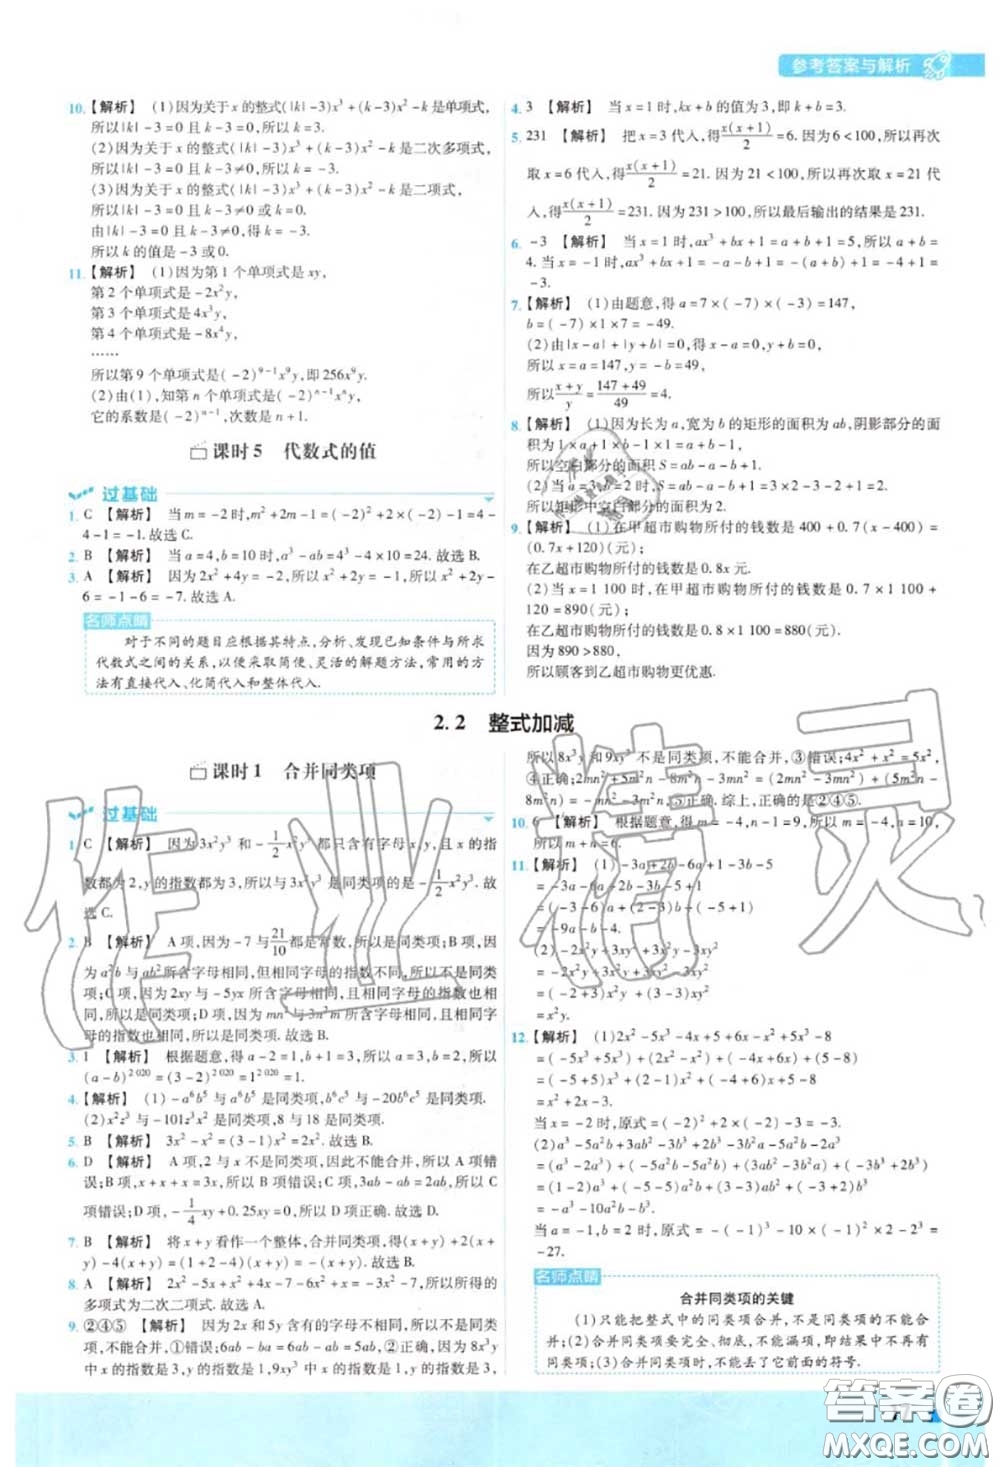 参考答案与解析
10.【解析】 (1)因为关于x的整式(|k|-3)x³+(k-3)x²-k是单项式,
所以|k|-3=0且k-3=0,所以k=3.
(2)因为关于x的整式(|k|-3)x³+(k-3)x²-k是二次多项式,
所以|k|-3=0且k-3≠0,所以k=-3.
(3)因为关于x的整式(|k|-3)x³+(k-3)x²-k是二项式,
所以|k|-3=0且k-3≠0或k=0.
由|k|-3=0且k-3≠0,得k=-3.
所以k的值是-3或0.
11.【解析】 (1)因为第1个单项式是xy,
第2个单项式是-2x²y,
第3个单项式是4x³y,
第4个单项式是-8x⁴y,
……
所以第9个单项式是(-2)⁹⁻¹x⁹y,即256x⁹y.
(2)由(1),知第n个单项式是(-2)ⁿ⁻¹xⁿy,
它的系数是(-2)ⁿ⁻¹,次数是n+1.
课时5 代数式的值
过基础
1. C 【解析】 当m=-2时,m²+2m-1=(-2)²+2×(-2)-1=4-
4-1=-1.故选C.
2. B 【解析】 当a=4,b=10时,a³-ab=4³-4×10=24.故选B.
3. A 【解析】 因为2x²+4y=-2,所以x²+2y=-1,所以x²+2y-
6=-1-6=-7.故选A.
名师点睛
对于不同的题目应根据其特点,分析、发现已知条件与所求
代数式之间的关系,以便采取简便、灵活的解题方法,常用的方
法有直接代入、化简代入和整体代入.
4. 3 【解析】 当x=1时,kx+b的值为3,即k+b=3.
5. 231 【解析】 把x=3代入,得x(x+1)/2=6.因为6<100,所以再次
取x=6代入,得x(x+1)/2=21.因为21<100,所以再次取x=21代
入,得x(x+1)/2=231.因为231>100,所以最后输出的结果是231.
6. -3 【解析】 当x=1时,ax³+bx+1=a+b+1=5,所以a+b=
4.当x=-1时,ax³+bx+1=-a-b+1=-(a+b)+1=-4+1=
-3.
7.【解析】 (1)由题意,得a=7×(-7)×(-3)=147,
b=(-7)×1×7=-49.
(2)由|x-a|+|y+b|=0,得x-a=0,y+b=0,
所以x=a=147,y=-b=49,
所以(x+y)/y=(147+49)/49=4.
8.【解析】 (1)因为长为a,宽为b的矩形的面积为ab,阴影部分的
面积为1×a+1×b-1×1=a+b-1,
所以空白部分的面积S=ab-a-b+1.
(2)当a=3,b=2时,S=ab-a-b+1=6-3-2+1=2,
所以矩形中空白部分的面积为2.
9.【解析】 (1)在甲超市购物所付的钱数是400+0.7(x-400)=
(0.7x+120)(元);
在乙超市购物所付的钱数是0.8x元.
(2)当x=1 100时,在甲超市购物所付的钱数是0.7×1 100+
120=890(元);
在乙超市购物所付的钱数是0.8×1 100=880(元).
因为890>880,
所以顾客到乙超市购物更优惠.
2.2 整式加减
课时1 合并同类项
过基础
1. C 【解析】 因为3x²y³和-1/2x²y³都只含有字母x和y,且x的指
数都为2,y的指数都为3,所以与3x²y³是同类项的是-1/2x²y³.故
选C.
2. B 【解析】 A项,因为-7与21/10都是常数,所以是同类项;B项,因
为a²b与ab²所含字母相同,但相同字母的指数不同,所以不是同类
项;C项,因为2xy与-5yx所含字母相同,且相同字母的指数也相
同,所以是同类项;D项,因为mn²与3n²m所含字母相同,且相同字
母的指数也相同,所以是同类项.故选B.
3. 1 【解析】 根据题意,得a-2=1,b+1=3,所以a=3,b=2,所以
(a-b)²⁰²⁰=(3-2)²⁰²⁰=1²⁰²⁰=1.
4.【解析】 (1)-a⁶b⁵与a⁶b⁵是同类项,b⁶c⁵与-20b⁶c⁵是同类项.
(2)x²z³与-101z³x²是同类项,8与18是同类项.
5. B 【解析】 3x²-x²=(3-1)x²=2x².故选B.
6. D 【解析】 A项,2与x不是同类项,因此不能合并,所以A项错
误;B项,x+x+x=3x,所以B项错误;C项,3ab-ab=2ab,所以C
项错误;D项,-1/4xy+0.25xy=0,所以D项正确.故选D.
7. B 【解析】 将x+y看作一个整体,合并同类项,得(x+y)+2(x+
y)-4(x+y)=(1+2-4)(x+y)=-(x+y).故选B.
8. A 【解析】 2x²-5x+x²+4x-3x²-6x=-7x,所以所得的
多项式为二次二项式.故选A.
9. ②④⑤ 【解析】 因为2x和5y含有的字母不相同,不是同类
项,不能合并,①错误;6ab-ba=6ab-ab=5ab,②正确;8x³y
中x的指数是3,y的指数是1,9xy³中x的指数是1,y的指数是3,
所以8x³y和9xy³不是同类项,不能合并,③错误;4x²+x²=5x²,
④正确;2mn²+5m²n-8m²n-3mn²=(2mn²-3mn²)+(5m²n-
8m²n)=-mn²-3m²n,⑤正确.综上,正确的是②④⑤.
10. 6 【解析】 根据题意,得m=-4,n-1=9,所以m=-4,n=10,所
以m+n=6.
11.【解析】 (1)-3a+2b-6a+1-3b-5
=-3a-6a+2b-3b+1-5
=(-3-6)a+(2-3)b+(-5+1)
=-9a-b-4.
=x²y.
12.【解析】 (1)2x²-5x³-4x+5+6x-x²+5x³-8
=(-5x³+5x³)+(2x²-x²)+(-4x+6x)+(5-8)
=x²+2x-3.
当x=-2时,原式=(-2)²+2×(-2)-3=-3.
=-a³-10a²b-5b³.
当a=-1,b=2时,原式=-(-1)³-10×(-1)²×2-
-27.
名师点睛
合并同类项的关键
(1)只能把整式中的同类项合并,不是同类项的不能合
并;(2)合并同类项要完全、彻底,不能漏项,即结果中不再有
同类项;(3)合并同类项时,不能丢了它前面的符号.
作业精灵
答案圈
MXQE.COM